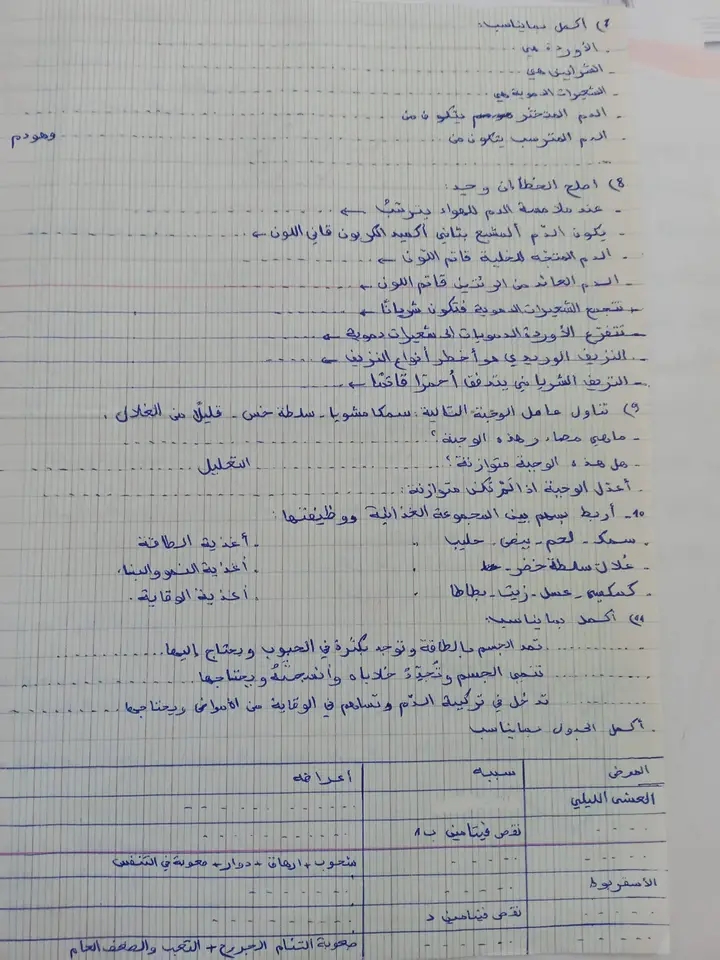 7) أكمل بما يناسب:
- الأوردة هي ............
- الشرايين هي ............
- الشعيرات الدموية هي ............
- الدم المتخثر يتكون من ............
- الدم المترسب يتكون من ............ وهو دم
............
8) أصلح الخطأ إن وجد:
- عند ملامسة الدم للهواء يترسّب ← ............
- يكون الدّم المشبع بثاني أكسيد الكربون قاني اللون ← ............
- الدم المتجه للخلية قاتم اللّون ← ............
- الدم العائد من الرئتين قاتم اللون ← ............
- تتجمع الشعيرات الدموية فتكون شريانًا ← ............
- تتفرّع الأوردة الدمويات إلى شعيرات دموية ← ............
- النزيف الوريدي هو أخطر أنواع النزيف ← ............
- النزيف الشرياني يتدفق أحمرا قاتمًا ← ............
9) تناول عامل الوجبة التالية: سمكا مشويا - سلطة خس - قليلًا من الغلال.
- ماهي مصادر هذه الوجبة؟ ............
- هل هذه الوجبة متوازنة؟ ............ التعليل ............
- أعدّل الوجبة اذا لم تكن متوازنة: ............
10- أربط بسهم بين المجموعة الغذائية ووظيفتها:
- سمك - لحم - بيض - حليب . . أغذية الطاقة
- غلال سلطة خضر - . . أغذية النمو والبناء
- كسكسي - عسل - زيت - بطاطا . . أغذية الوقاية.
11) أكمل بما يناسب:
............ تمد الجسم بالطاقة وتوجد بكثرة في الحبوب ويحتاج إليها ............
............ تنمي الجسم وتُجدّدُ خلاياه وأنسجتهُ ويحتاجها ............
............ تدخل في تركيبة الدّم وتساهم في الوقاية من الأمراض ويحتاجها ............
. أكمل الجدول بما يناسب
المرض | سببه | أعراضه
العشى الليلي | | - - - - -
- - - - | نقص فيتامين ب1 | - - - - -
- - - - | - - - - | شحوب + ارهاق + دوار + صعوبة في التنفس
الأسقربوط | - - - - | - - - - -
- - - - | نقص فيتامين د | - - - - -
- - - - | - - - - | صعوبة التئام الجروح + التعب والضعف العام